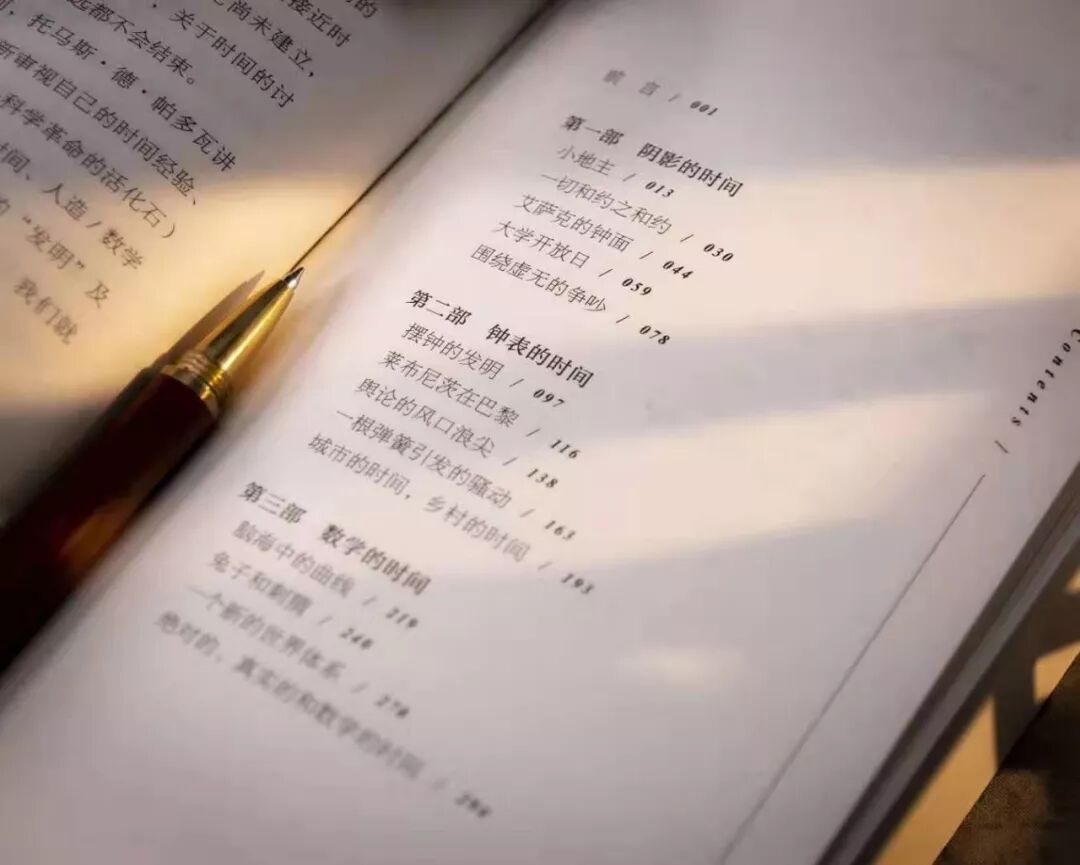 接近时
尚未建立，
都不会结束。关于时间的讨
托马斯·德·帕多瓦讲
新审视自己的时间经验、
科学革命的活化石）
时间、人造/数学
的“发明”及
我们就
前言 / 001
第一部 阴影的时间
小地主 / 013
一切和约之和约 / 030
艾萨克的钟面 / 044
大学开放日 / 059
围绕虚无的争吵 / 078
第二部 钟表的时间
摆钟的发明 / 097
莱布尼茨在巴黎 / 116
舆论的风口浪尖 / 138
一根弹簧引发的骚动 / 163
城市的时间，乡村的时间 / 193
第三部 数学的时间
脑海中的曲线 / 219
兔子和刺猬 / 240
一个新的世界体系 / 270
绝对的、真实的和数学的时间 / 298
Contents /